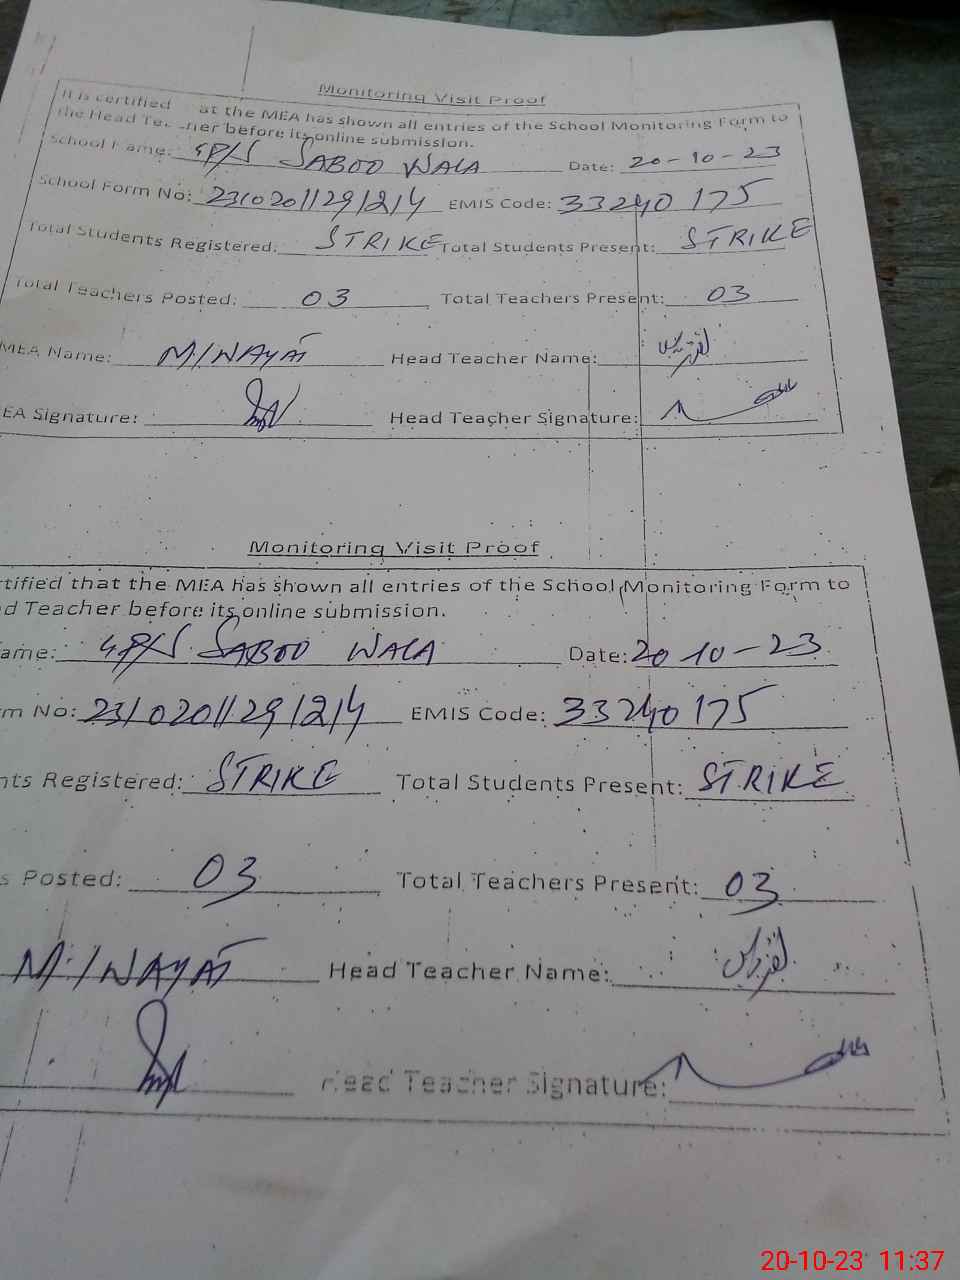 Monitoring Visit Proof
It is certified at the MEA has shown all entries of the School Monitoring Form to
the Head Te ner before its online submission.
School Name: GP/S SABOO WALA Date: 20-10-23
School Form No: 23/0201129/2/4 EMIS Code: 33240175
Total Students Registered: STRIKE Total Students Present: STRIKE
Total Teachers Posted: 03 Total Teachers Present: 03
MEA Name: M. INAYAT Head Teacher Name:
EA Signature: Head Teacher Signature:
Monitoring Visit Proof
rtified that the MEA has shown all entries of the School Monitoring Form to
d Teacher before its online submission.
ame: GP/S SABOO WALA Date: 20-10-23
rm No: 23/0201129/2/4 EMIS Code: 33240175
nts Registered: STRIKE Total Students Present: STRIKE
s Posted: 03 Total Teachers Present: 03
M. INAYAT Head Teacher Name:
Head Teacher Signature:
20-10-23 11:37